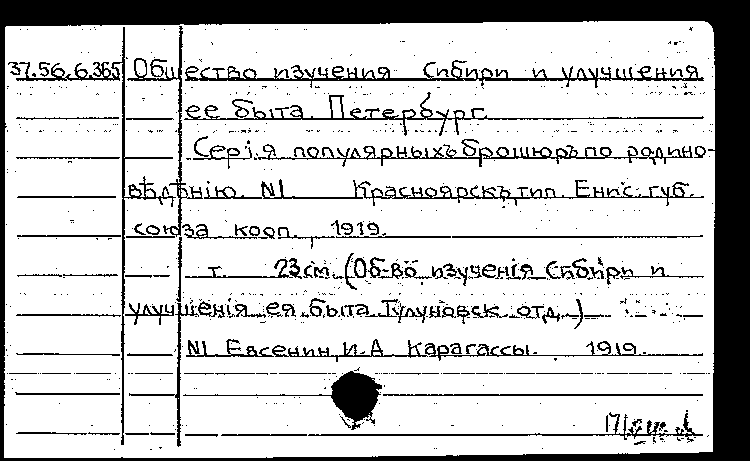 37.56.6.365 Общество изучения Сибири и улучшения
ее быта. Петербург.
Серія популярныхъ брошюръ по родино-
вѣдѣнію. №1. Красноярскъ, тип. Енис. губ.
союза кооп., 1919.
т. 23см. (Об-во изученія Сибири и
улучшенія ея быта Тулуновск. отд.)
№1 Евсенин, И.А. Карагассы. 1919.